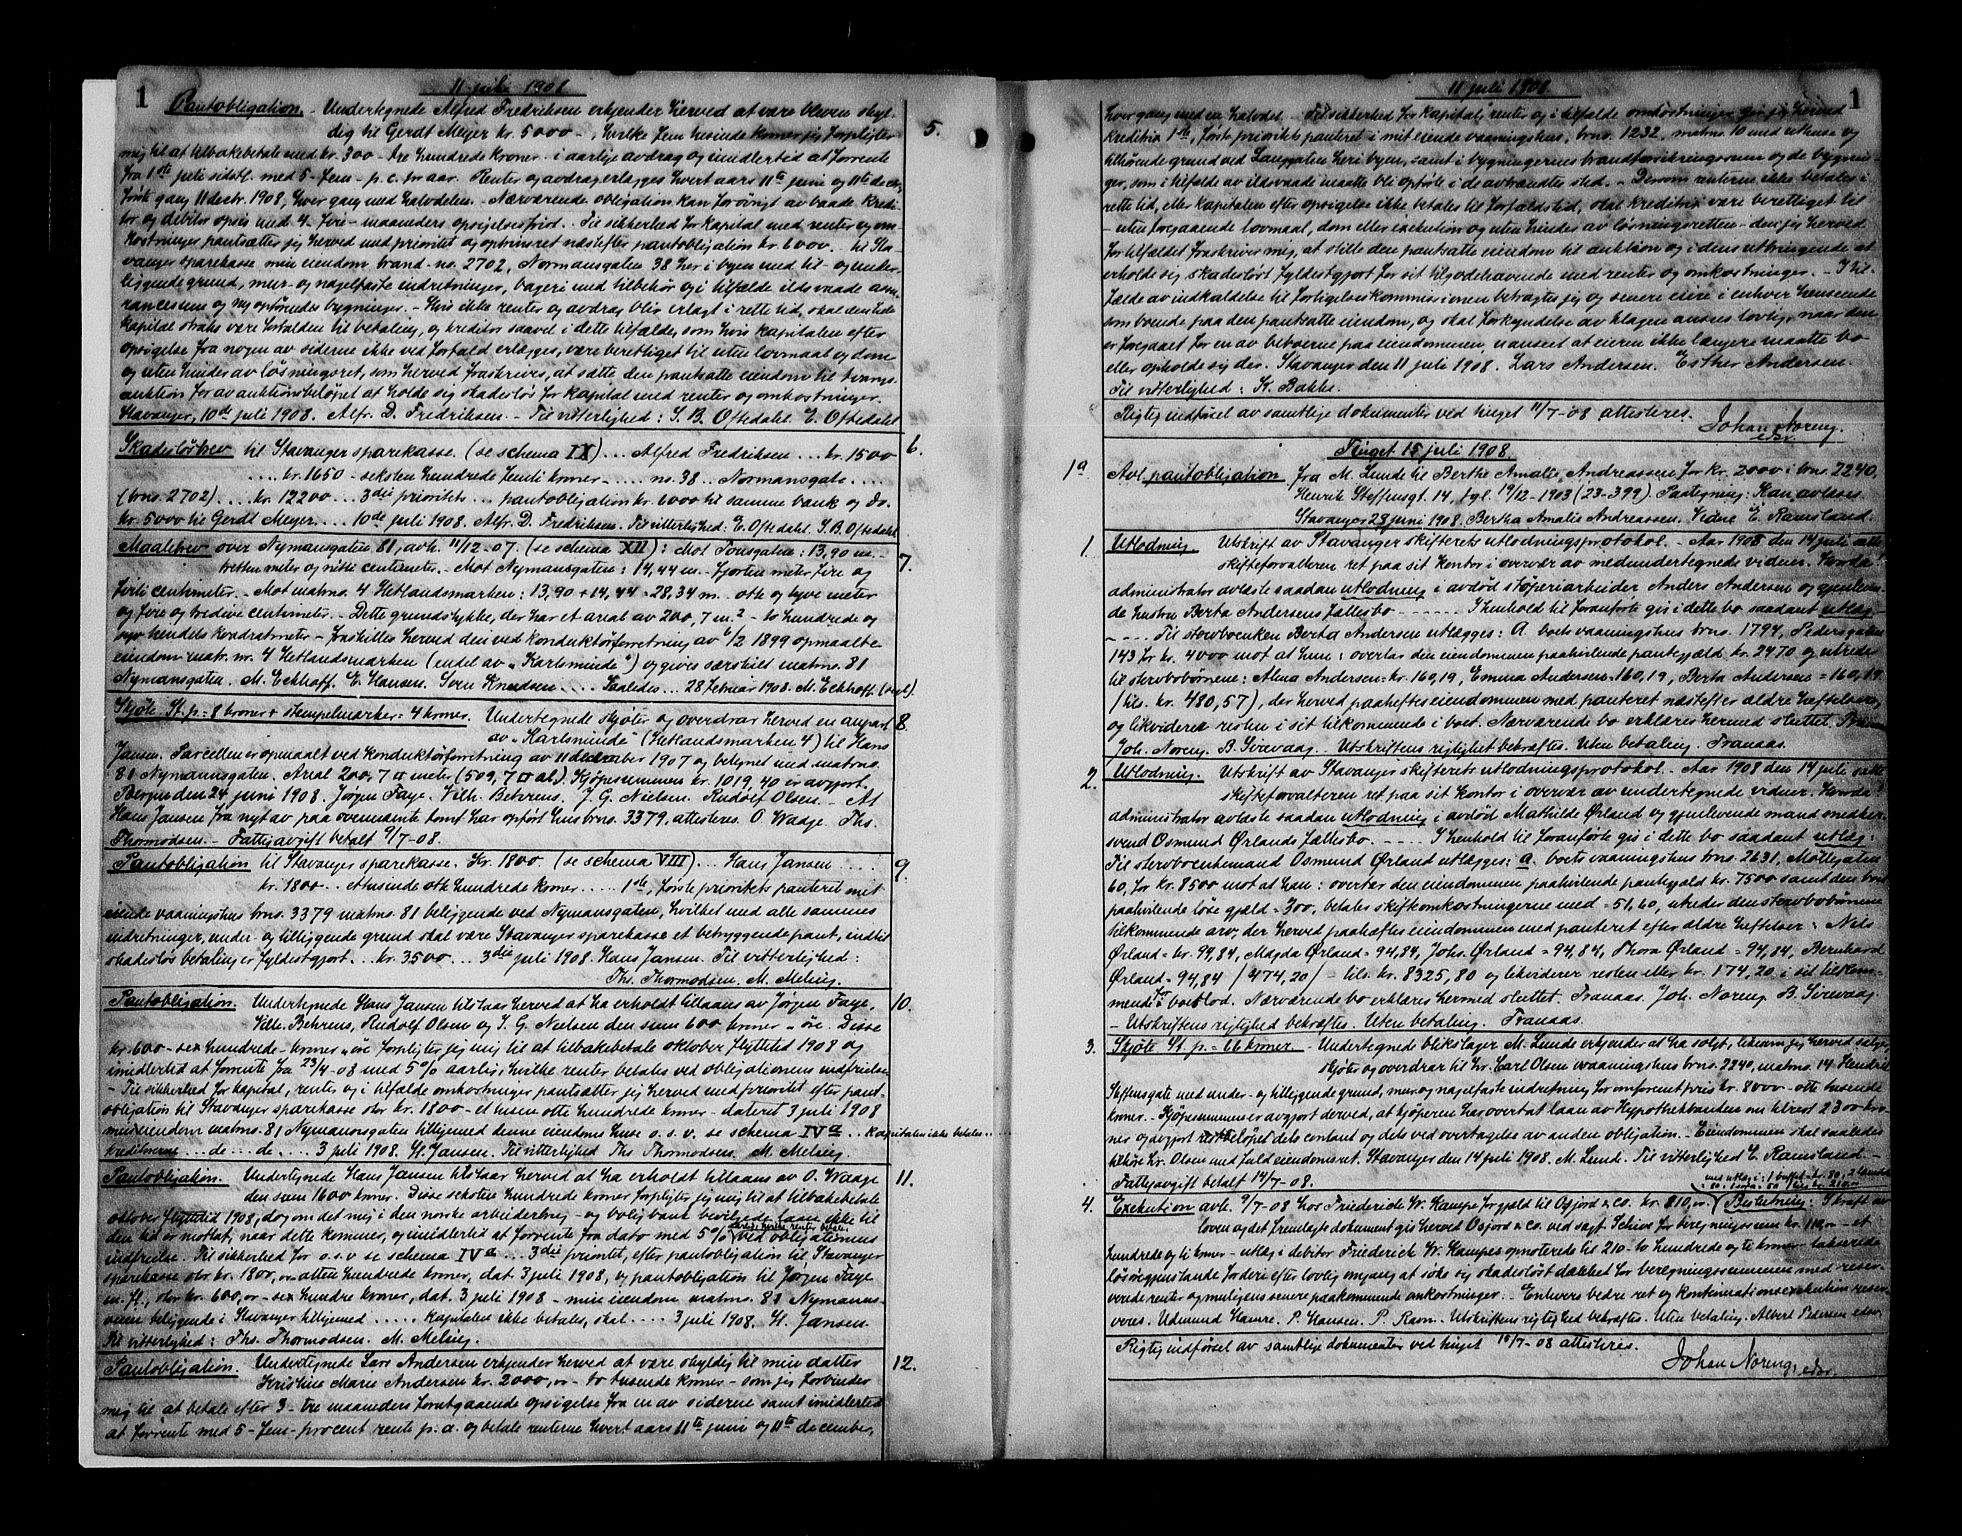 1
11 juli 1908
Pantobligation. - Undertegnede Alfred Fredriksen erkjender herved at være bleven skyl-
dig til Gerdt Meyer kr. 5000 -, hvilke fem tusinde kroner jeg forpligter
5.
mig til at tilbakebetale med kr. 300 - tre hundrede kroner - i aarlige avdrag og imidlertid at forrente
fra 1ste juli sidstl. med 5 - fem - p. c. pr aar. Renter og avdrag erlægges hvert aars 11te juni og 11te decbr,
første gang 11 decbr. 1908, hver gang med halvdelen. - Nærværende obligation kan forøvrigt av baade kredi-
tor og debitor opsies med 4 - fire - maaneders opsigelsesfrist. - Til sikkerhed for kapital med renter og om-
kostninger pantsætter jeg herved med prioritet og optrinsret næstefter pantobligation kr. 6000 - til Sta-
vanger sparekasse min eiendom brand-no. 2702, Normansgaten 38 her i byen med til- og under-
liggende grund, mur- og nagelfaste indretninger, bageri med tilbehør og i tilfælde ildsvaade assu-
rancesum og ny opførendes bygninger. - Hvis ikke renter og avdrag blir erlagt i rette tid, skal den hele
kapital straks være forfalden til betaling, og kreditor saavel i dette tilfælde, som hvis kapitalen efter
opsigelse fra nogen av siderne ikke ved forfald erlægges, være berettiget til uten lovmaal og dom
og uten hinder av løsningsret, som herved fraskrives, at sætte den pantsatte eiendom til tvangs-
auktion for av auktionsbeløpet at holde sig skadesløs for kapital med renter og omkostninger.
Stavanger, 10de juli 1908. Alfr. D. Fredriksen. - Til vitterlighed: S. B. Oftedahl. E. Oftedahl
Skadesløsbrev til Stavanger sparekasse. (se schema IX) ... Alfred Fredriksen ... kr. 1500
6.
.... kr. 1650 - seksten hundrede femti kroner - .... no. 38 Normansgate ....
(brno. 2702) .... kr. 12200 ... 3die prioritets ... pantobligation kr. 6000 til samme bank og do.
kr. 5000 til Gerdt Meyer .... 10de juli 1908. Alfr. D. Fredriksen. Til vitterlighed: E. Oftedahl. S. B. Oftedahl
Maalebrev over Nymansgaten 81, avh. 11/12-07. (se schema XII): Mot Tonsgaten: 13,90 m. -
7.
tretten meter og nitti centimeter. - Mot Nymansgaten: 14,44 m. - fjorten meter fire og
firti centimeter. - Mot matrno. 4 Hetlandsmarken: 13,90 + 14,44 = 28,34 m. otte og tyve meter
og fire og tredive centimeter. - Dette grundstykke, der har et areal av 200,7 m.² - to hundrede og
syv tiendels kvadratmeter - fraskilles herved den ved konduktørforretning av 6/2 1899 opmaalte
eiendom matr. nr. 4 Hetlandsmarken (en del av "Karlsminde") og gives særskilt matrno. 81
Nymansgaten. M. Eckhoff. E. Hansen. Sven Knudsen .... Saaledes ... 28 februar 1908. M. Eckhoff. (segl).
Skjøte St. p = 8 kroner + stempelmerker = 4 kroner. Undertegnede skjøter og overdrar herved en anpart
8.
av "Karlsminde" (Hetlandsmarken 4) til Hans
Jansen. Parcellen er opmaalt ved konduktørforretning av 11 december 1907 og betegnet med matrno.
81 Nymannsgaten. Areal 200,7 □ meter (509,7 □ al.) Kjøpesummen kr. 1019,40 er avgjort.
Bergen den 24 juni 1908. Jørgen Faye. Vilh. Behrens. J. G. Nielsen. Rudolf Olsen. - At
Hans Jansen fra nyt av paa ovennævnte tomt har opført hus brno. 3379, attesteres. O. Waage. Ths.
Thormodsen. - Fattigavgift betalt 9/7-08.
Pantobligation til Stavanger sparekasse. Kr. 1800 (se schema VIII) ... Hans Jansen ....
9.
kr. 1800 - ettusende otte hundrede kroner .... 1ste, første prioritets panteret i mit
eiende vaaningshus brno. 3379 matrno. 81 beliggende ved Nymansgaten, hvilket med alle sammes
indretninger, under- og tilliggende grund skal være Stavanger sparekasse et betryggende pant, indtil
skadesløs betaling er fyldestgjort ... kr. 3500 ... 3die juli 1908. Hans Jansen. Til vitterlighed:
Ths. Thormodsen. M. Melsing.
Pantobligation. Undertegnede Hans Jansen tilstaar herved at ha erholdt tillaans av Jørgen Faye,
10.
Vilh. Behrens, Rudolf Olsen og J. G. Nielsen den sum 600 kroner " øre. Disse
kr. 600 - sex hundrede - kroner " øre forpligter jeg mig til at tilbakebetale oktober flyttetid 1908 og
imidlertid at forrente fra 23/4-08 med 5% aarlig, hvilke renter betales ved obligationens indfrielse.
- Til sikkerhed for kapital, renter, og i tilfælde omkostninger pantsætter jeg herved med prioritet efter pant-
obligation til Stavanger sparekasse stor kr. 1800 - et tusen otte hundrede kroner - dateret 3 juli 1908
min eiendom matrno. 81 Nymansgaten tilligemed denne eiendoms huse o. s. v. se schema IVa .. Kapitalen ikke betales ....
kreditorerne ... de ... de .... 3 juli 1908. H. Jansen. Til vitterlighed Ths. Thormodsen. M. Melsing.
Pantobligation. Undertegnede Hans Jansen tilstaar herved at ha erholdt tillaans av O. Waage
11.
den sum 1600 kroner. Disse seksten hundrede kroner forpligter jeg mig til at tilbakebetale
oktober flyttetid 1908, dog om det mig i den norske arbeiderbrug - og boligbank bevilgede laan ikke til
den tid er mottat, naar dette kommer, og imidlertid at forrente fra dato med 5% aarlig, hvilke renter betales ved obligationens
indfrielse. Til sikkerhed for o.s.v. se schema IVa ... 3die prioritet, efter pantobligation til Stavanger
sparekasse stor kr. 1800,oo atten hundrede kroner, dat. 3 juli 1908, og pantobligation til Jørgen Faye
m. fl., stor kr. 600,oo - sex hundre kroner, dat. 3. juli 1908 - min eiendom matrno. 81 Nymanns-
veien beliggende i Stavanger tilligemed ..... Kapitalen ikke betales, skal .... 3 juli 1908. H. Jansen.
Til vitterlighed: Ths. Thormodsen. M. Melsing.
Pantobligation. Undertegnede Lars Andersen erkjender herved at være skyldig til min datter
12.
Kristine Marie Andersen kr. 2000,oo - to tusende kroner - som jeg forbinder
mig til at betale efter 3 - tre maaneders forutgaaende opsigelse fra en av siderne samt imidlertid
at forrente med 5 - fem - procent rente p. a. og betale renterne hvert aars 11te juni og 11te december,
11 juli 1908.
1
hver gang med en halvdel. - Til sikkerhed for kapital, renter og i tilfælde omkostninger gir jeg herved
kreditrix 1ste, første prioritets panteret i mit eiende vaaningshus, brno. 1232, matrno 10 med uthuse og
tilhørende grund ved Laugaten her i byen, samt i bygningernes brandforsikringssum og de bygnin-
ger, som i tilfælde av ildsvaade maatte bli opførte i de avbrændtes sted. - Dersom renterne ikke betales i
rette tid, eller kapitalen efter opsigelse ikke betales til forfaldstid, skal kreditrix være berettiget til
- uten foregaaende lovmaal, dom eller exekution og uten hinder av løsningsretten - den jeg herved
for tilfældet fraskriver mig, at stille den pantsatte eiendom til auktion og i dens utbringende at
erholde sig skadesløst fyldestgjort for sit tilgodehavende med renter og omkostninger. - I til-
fælde av indkaldelse til forligelseskommissionen betragtes jeg og senere eiere i enhver henseende
som boende paa den pantsatte eiendom, og skal forkyndelse av klagen ansees lovlig, naar den
er foregaaet for en av beboerne paa eiendommen, uanseet at eieren ikke længere maatte bo
eller opholde sig der. Stavanger den 11 juli 1908. Lars Andersen. Esther Andersen.
Til vitterlighed: K. Bakke.
Rigtig indførsel av samtlige dokumenter ved tinget 11/7-08 attesteres.
Johan Noreng.
edsv.
Tinget 15 juli 1908.
1a
Avl. pantobligation fra M. Lunde til Bertha Amalie Andreassen for kr. 2000 i brno. 2240.
Henrik Steffensgt. 14, tgl. 19/12-1903 (23-399). Pategning: Kan avlæses.
Stavanger 23 juni 1908. Bertha Amalie Andreassen. Vidne E. Ramsland.
1.
Utlodning. Utskrift av Stavanger skifterets utlodningsprotokol. - Aar 1908 den 14 juli satte
skifteforvalteren ret paa sit kontor i overvær av medundertegnede vidner. Hvorda:
administrator avlæste saadan utlodning i avdød støperiarbeider Anders Andersen og gjenleven-
de hustru Berta Andersens fællesbo - - - - - - I henhold til foranførte gis i dette bo saadant utlæg -
- - - - . Til stervboenken Berta Andersen utlægges: A. boets vaaningshus brno. 1794, Pedersgaten
143 for kr. 4000 mot at hun: overtar den eiendommen paahvilende pantegjæld kr. 2470 og utreder
til stervbobørnene: Alma Andersen = kr. 160,19, Emma Andersen = 160,19, Berta Andersen = 160,19
(tils. kr. 480,57), der herved paaheftes eiendommen med panteret næstefter ældre heftelser,
og likviderer resten i sit tilkommende i boet. Nærværende bo erklæres hermed sluttet.
Joh. Noreng. B. Sirevaag. - Utskriftens rigtighed bekræftes. Uten betaling. Tranaas.
2.
Utlodning. Utskrift av Stavanger skifterets utlodningsprotokol. - Aar 1908 den 14 juli satte
skifteforvalteren ret paa sit kontor i overvær av undertegnede vidner. Hvorda:
administrator avlæste saadan utlodning i avdød Mathilde Ørland og gjenlevende mand smedker-
svend Osmund Ørlands fællesbo - - - - - I henhold til foranførte gis i dette bo saadant utlæg:
Til stervboenkemand Osmund Ørland utlægges: a. boets vaaningshus brno. 2631, Møllegaten
60, for kr. 8500 mot at han: overtar den eiendommen paahvilende pantegjæld kr. 7500 samt den boet
paahvilende løse gjæld = 300, betaler skifteomkostningerne med = 51,60, utreder den stervbobørnene
tilkommende arv, der herved paaheftes eiendommen med panteret efter ældre heftelser: Nils
Ørland = kr. 94,84, Magda Ørland = 94,84, Johs. Ørland = 94,84, Thora Ørland = 94,84, Bernhard
Ørland = 94,84 (474,20) = tils. kr. 8325,80 og likviderer resten eller kr. 174,20 i sit tilkom-
mende for boeslod. Nærværende bo erklæres hermed sluttet. Tranaas. Joh. Noreng. B. Sirevaag.
- Utskriftens rigtighed bekræftes. Uten betaling. Tranaas.
3.
Skjøte St. p. = 66 kroner. - Undertegnede blikslager M. Lunde erkjender at ha solgt, likesom jeg herved sælger,
skjøter og overdrar til hr. Carl Olsen vaaningshus brno. 2240, matrno. 14 Hendrik
Steffensgate med under- og tilliggende grund, mur- og nagelfaste indretning for omforenet pris kr. 8000 - otte tusende
kroner. - Kjøpesummen er avgjort derved, at kjøperen har overtat laan av Hypothekbanken om tilrest 2300 kro-
ner og avgjort restbeløpet dels contant og dels ved overtagelse av anden obligation. - Eiendommen skal saaledes
tilhøre hr. Olsen med fuld eiendomsret. Stavanger den 14 juli 1908. M. Lunde. Til vitterlighed E. Ramsland. -
Fattigavgift betalt 14/7-08.
4.
Exekution avh. 9/7-08 hos Friederich Wr. Kampe for gjæld til Osjord & Co. kr. 810,oo Beslutning: I kraft av
loven og det fremlagte dokument gis herved Osjord & Co. ved sagf. Schiøe for beregningssum kr. 110,oo - et
hundrede og ti kroner - utlæg i debitor Friederich Wr. Kampes opnoterede til 210 - to hundrede og ti kroner - takserede
løsøregjenstande for deri efter lovlig omgang at søke sig skadesløst dækket for beregningssummen med reser-
verede renter og muligens senere paakommende omkostninger. - Enhvers bedre ret og kontinuationsexekution reser-
veres. Udmund Hamre. P. Hansen. P. Ravn. Utskriftens rigtighed bekræftes. Uten betaling. Albert Petersen edsv.
Rigtig indførsel av samtlige dokumenter ved tinget 15/7-08 attesteres.
Johan Noreng, edsv.